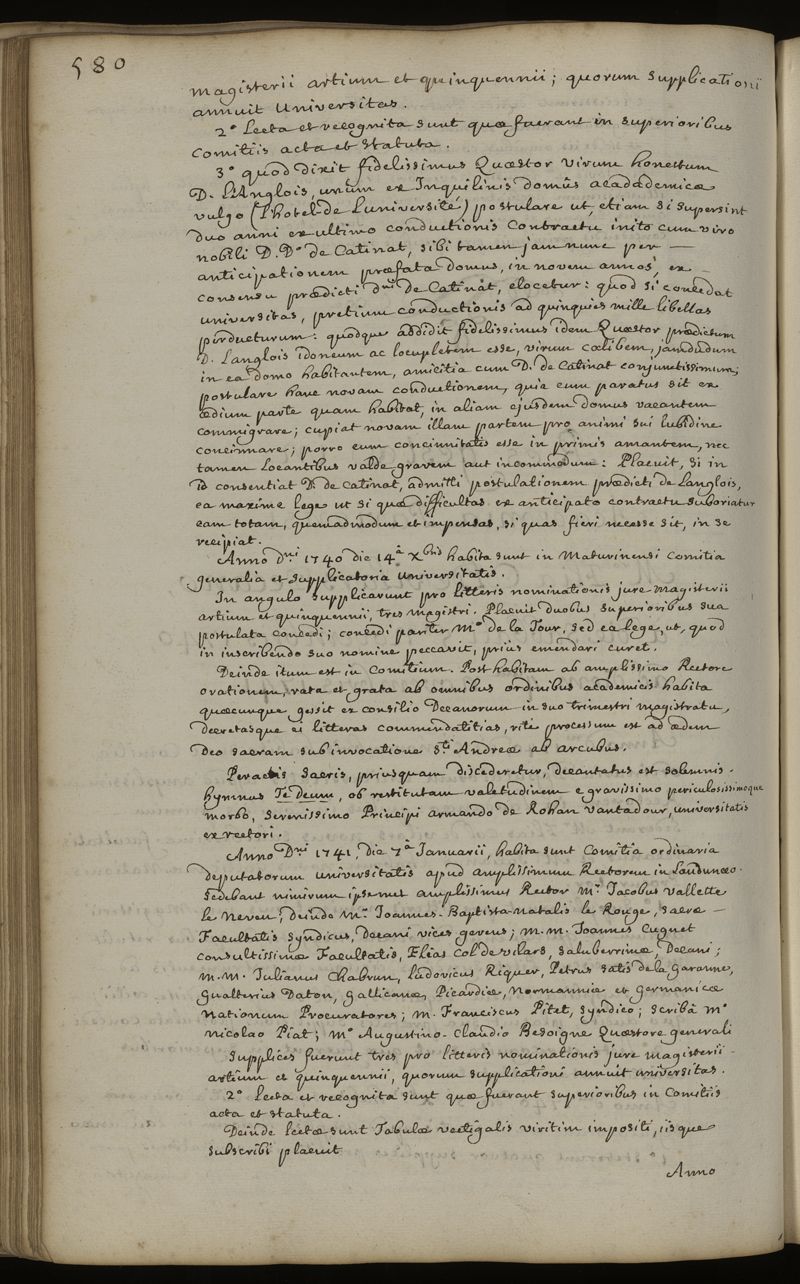 580
magisterii artium et quinquennii; quorum supplicationi
annuit Universitas.
2° Lecta et recognita sunt quæ fuerant in superioribus
Comitiis acta et statuta.
3° quod dixit fidelissimus Quæstor virum honestum
D. L'Anglois, unum ex Inquilinis domûs academicæ
vulgo (l'hotel de Luniversité) postulare ut, etiam si supersint
duo anni ex ultimo conductionis Contractu inito cum viro
nobili D. D° de Catinat, sibi tamen jam nunc per —
anticipationem præfata domus, in novem annos, ex
consensu prædicti dni de Catinat, elocetur: quod si concedat
universitas, pretium conductionis ad quinquies mille libellas
perducturum: quodque addidit fidelissimus idem Quæstor prædictum
D. Langlois idoneum ac locupletem esse, virum cælibem, jamdudum
in ea domo habitantem, amicitia cum D. de Catinat conjunctissimum;
postulare hanc novam conductionem, quia cum paratus sit ex
ædium parte quam habitat, in aliam ejusdem domus vacantem
commigrare; cupiat novam illam partem pro animi sui lubidine
concinnare; porro eum concinnitatis esse in primis amantem, nec
tamen Locantibus valde gravem aut incommodum: Placuit, si in
id consentiat D. de Catinat, admitti postulationem prædicti de Langlois,
ea maxime lege ut si qua difficultas ex anticipato contractu suboriatur
eam totam, quemadmodum et impensas, si quas fieri necesse sit, in se
recipiat.
Anno Dni 1740 die 14a Xbris habita sunt in Maturinensi Comitia
generalia et supplicatoria Universitatis.
In angulo supplicarunt pro litteris nominationis jure magisterii
artium et quinquennii, tres magistri. Placuit duobus superioribus sua
postulata concedi; concedi pariter M° de la Tour, sed ea lege, ut, quod
in inscribendo suo nomine peccavit, prius emendari curet.
Deinde itum est in Comitium. Post habitam ab amplissimo Rectore
orationem, rata et grata ab omnibus ordinibus academicis habita
quæcunque gessit ex consilio Decanorum in suo trimestri magistratu,
decretasque ei litteras commendatitias, rite processum est ad ædem
Deo sacram sub invocatione Sti Andreæ ab arcubus.
Peractis sacris, priusquam discederetur, decantatus est solemnis
hymnus Te Deum, ob restitutam valetudinem e gravissimo periculosissimoque
morbo, serenissimo Principi armando de Rohan Vantadour, universitatis
exrectori.
Anno Dni 1741, die 7a Januarii, habita sunt Comitia ordinaria
deputatorum universitatis apud amplissimum Rectorem in Laudunæo.
Sedebant nimirum ipsemet amplissimus Rector Mr. Jacobus Vallette
le Neveu; deinde Mr. Joannes-Baptista-natalis le Rouge, sacræ —
Facultatis syndicus, Decani vices gerens; M.M. Joannes Cugnet
consultissimæ Facultatis, Elias Col de vilars, saluberrimæ, Decani;
M.M. Julianus Chabrun, Ludovicus Riquer, Petrus satis de la Garanne,
Gualterius Daton, Gallicanæ, Picardicæ, Normanniæ et germanicæ
Nationum Procuratores; M. Franciscus Pitet, syndico; Scribâ M°
Nicolao Piat; M° Augustino-Claudio Besoigne Quæstore generali
Supplices fuerunt tres pro litteris nominationis jure magisterii
artium et quinquennii, quorum supplicationi annuit universitas.
2° Lecta et recognita sunt quæ fuerant superioribus in Comitiis
acta et statuta.
Deinde lectæ sunt Tabulæ vectigalis viritim impositi, iisque
subscribi placuit
Anno